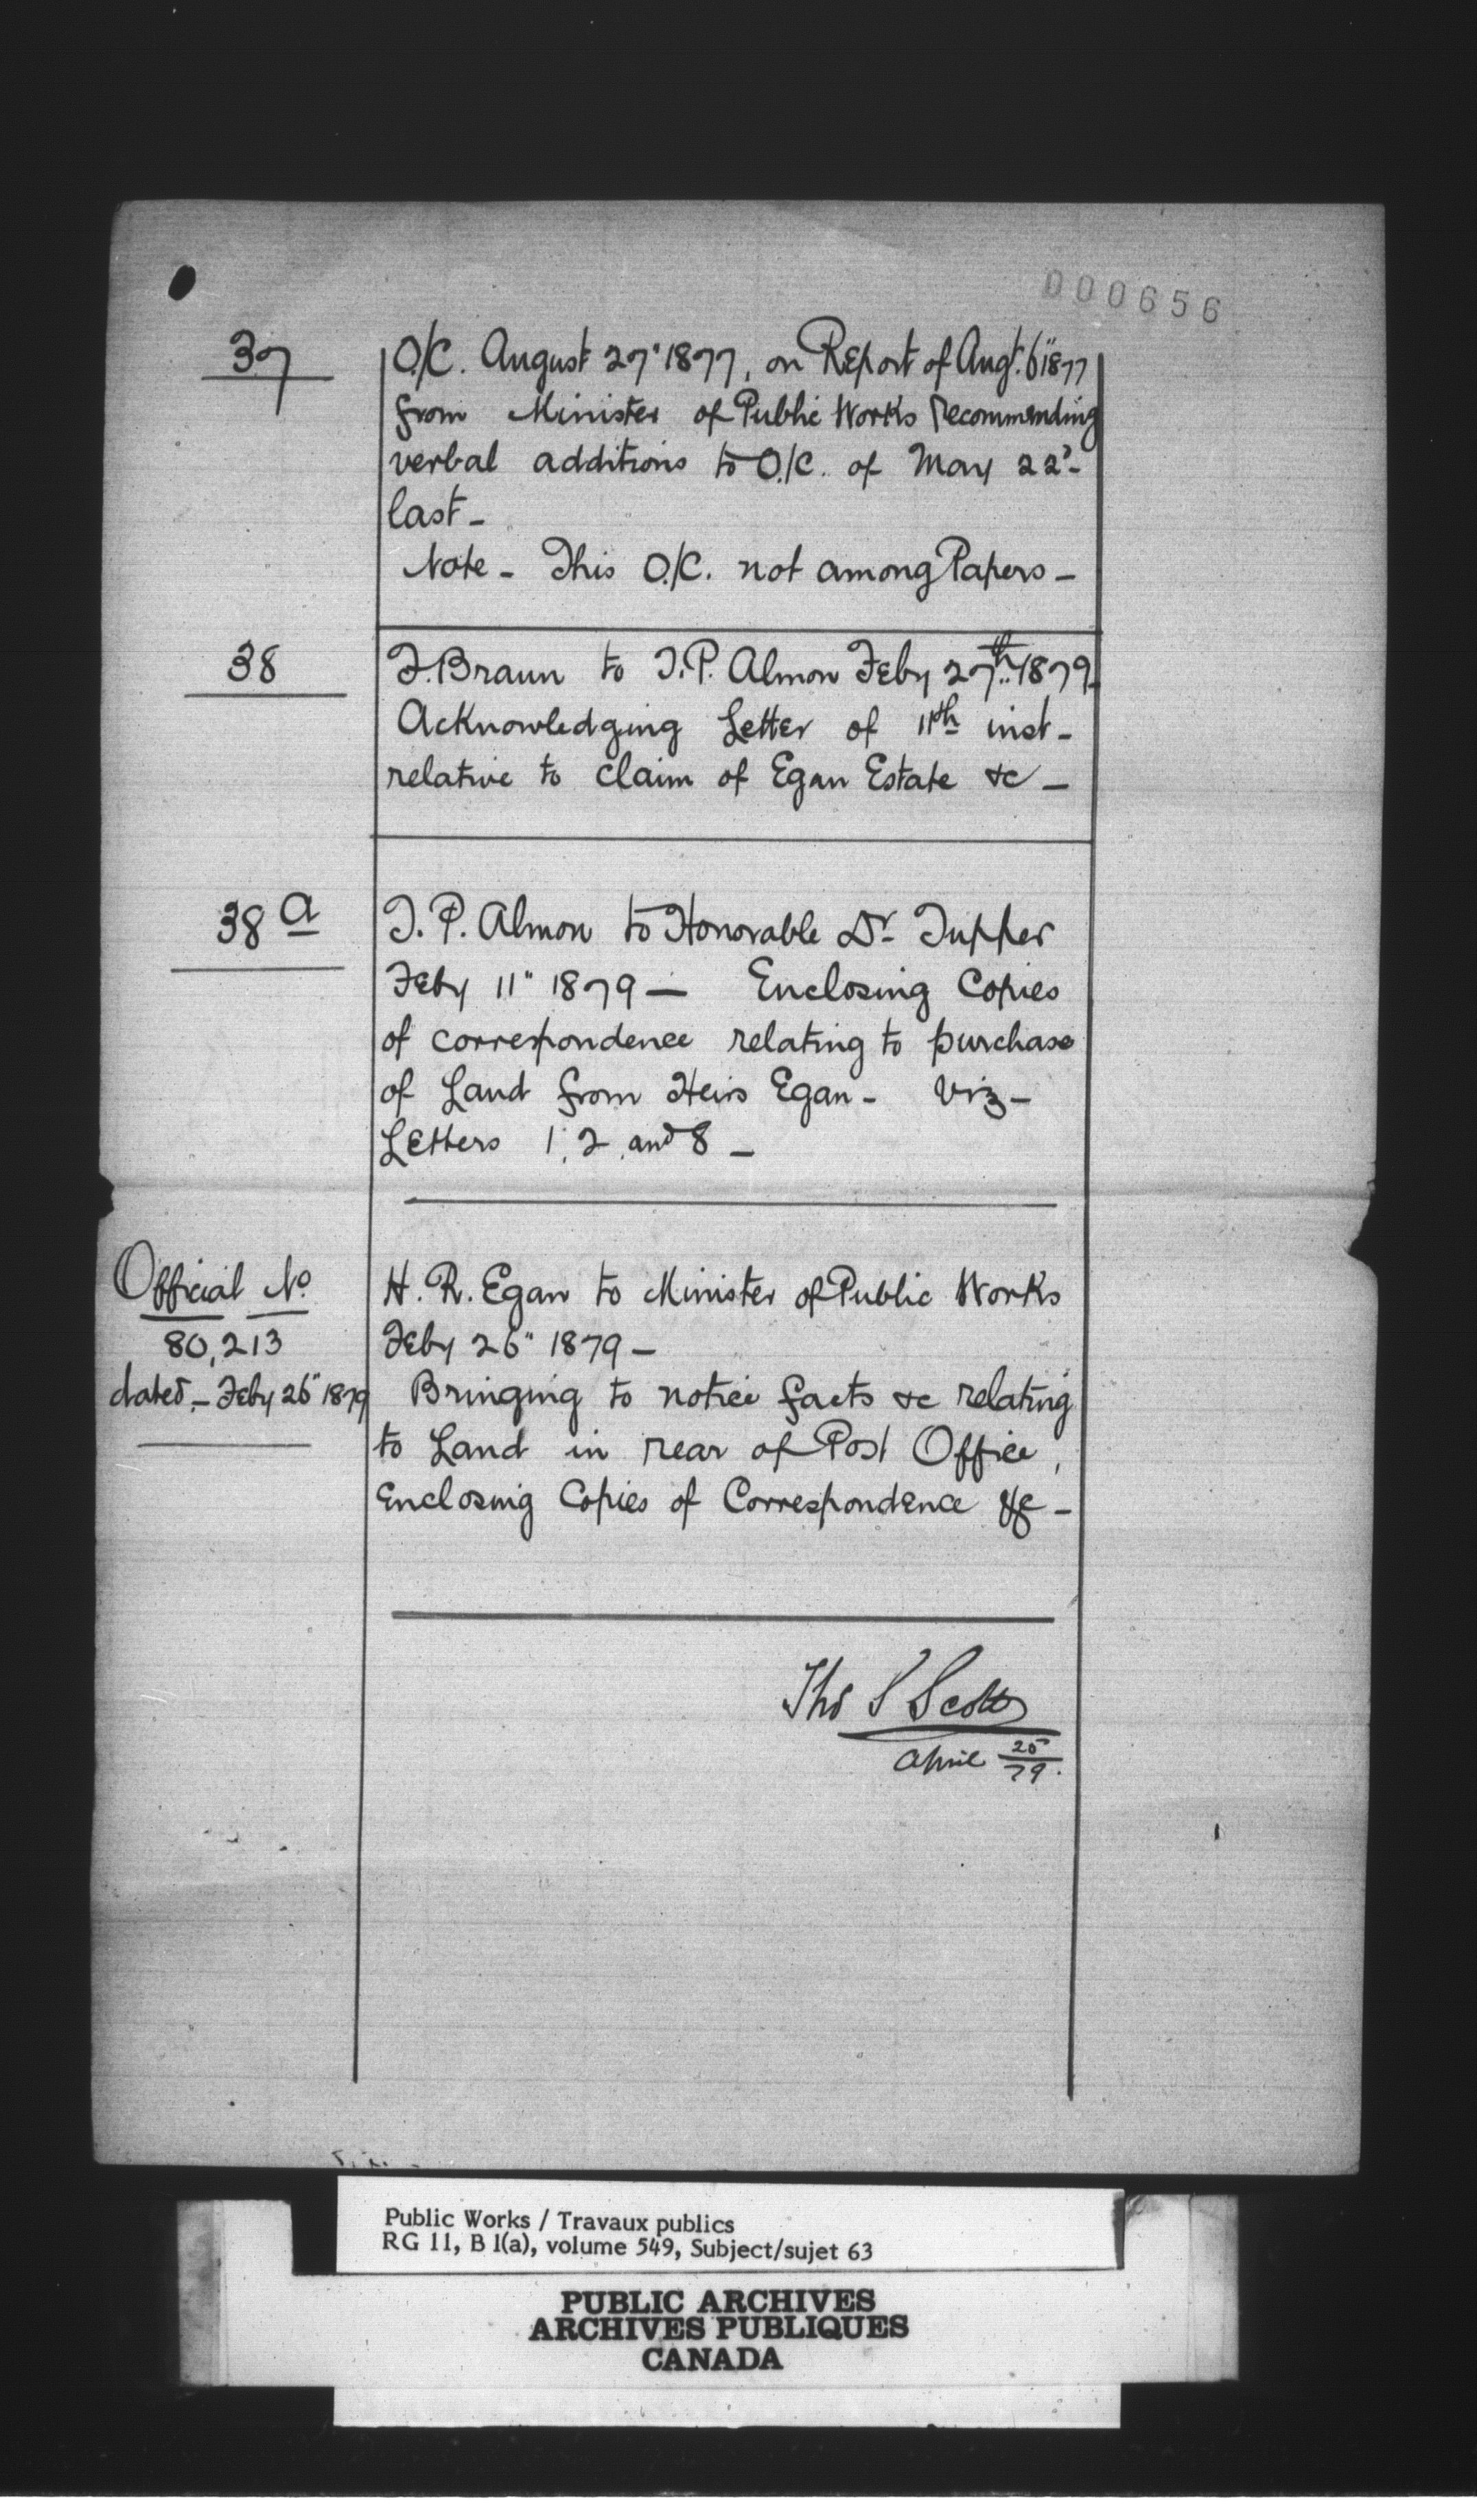 000656
37
O/C. August 27" 1877, on Report of Augt. 6" 1877
from Minister of Public Works recommending
verbal additions to O/C. of May 22d -
last -
Note - This O/C. not among Papers -
38
F. Braun to T. P. Almon Feby 27th 1879.
Acknowledging Letter of 11th inst -
relative to claim of Egan Estate &c -
38 a
T. P. Almon to Honorable Dr. Tupper
Feby 11" 1879 - Enclosing Copies
of correspondence relating to purchase
of Land from Heirs Egan - Viz -
Letters 1, 2, and 8 -
Official No
80,213
dated - Feby 26" 1879
H. R. Egan to Minister of Public Works
Feby 26" 1879 -
Bringing to notice facts &c relating
to Land in rear of Post Office,
Enclosing Copies of Correspondence &c -
Thos S Scott
April 25/79.
Public Works / Travaux publics
RG 11, B 1(a), volume 549, Subject/sujet 63
PUBLIC ARCHIVES
ARCHIVES PUBLIQUES
CANADA